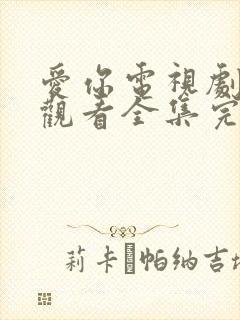 愛你電視劇
觀看全集完
莉卡 帕納吉